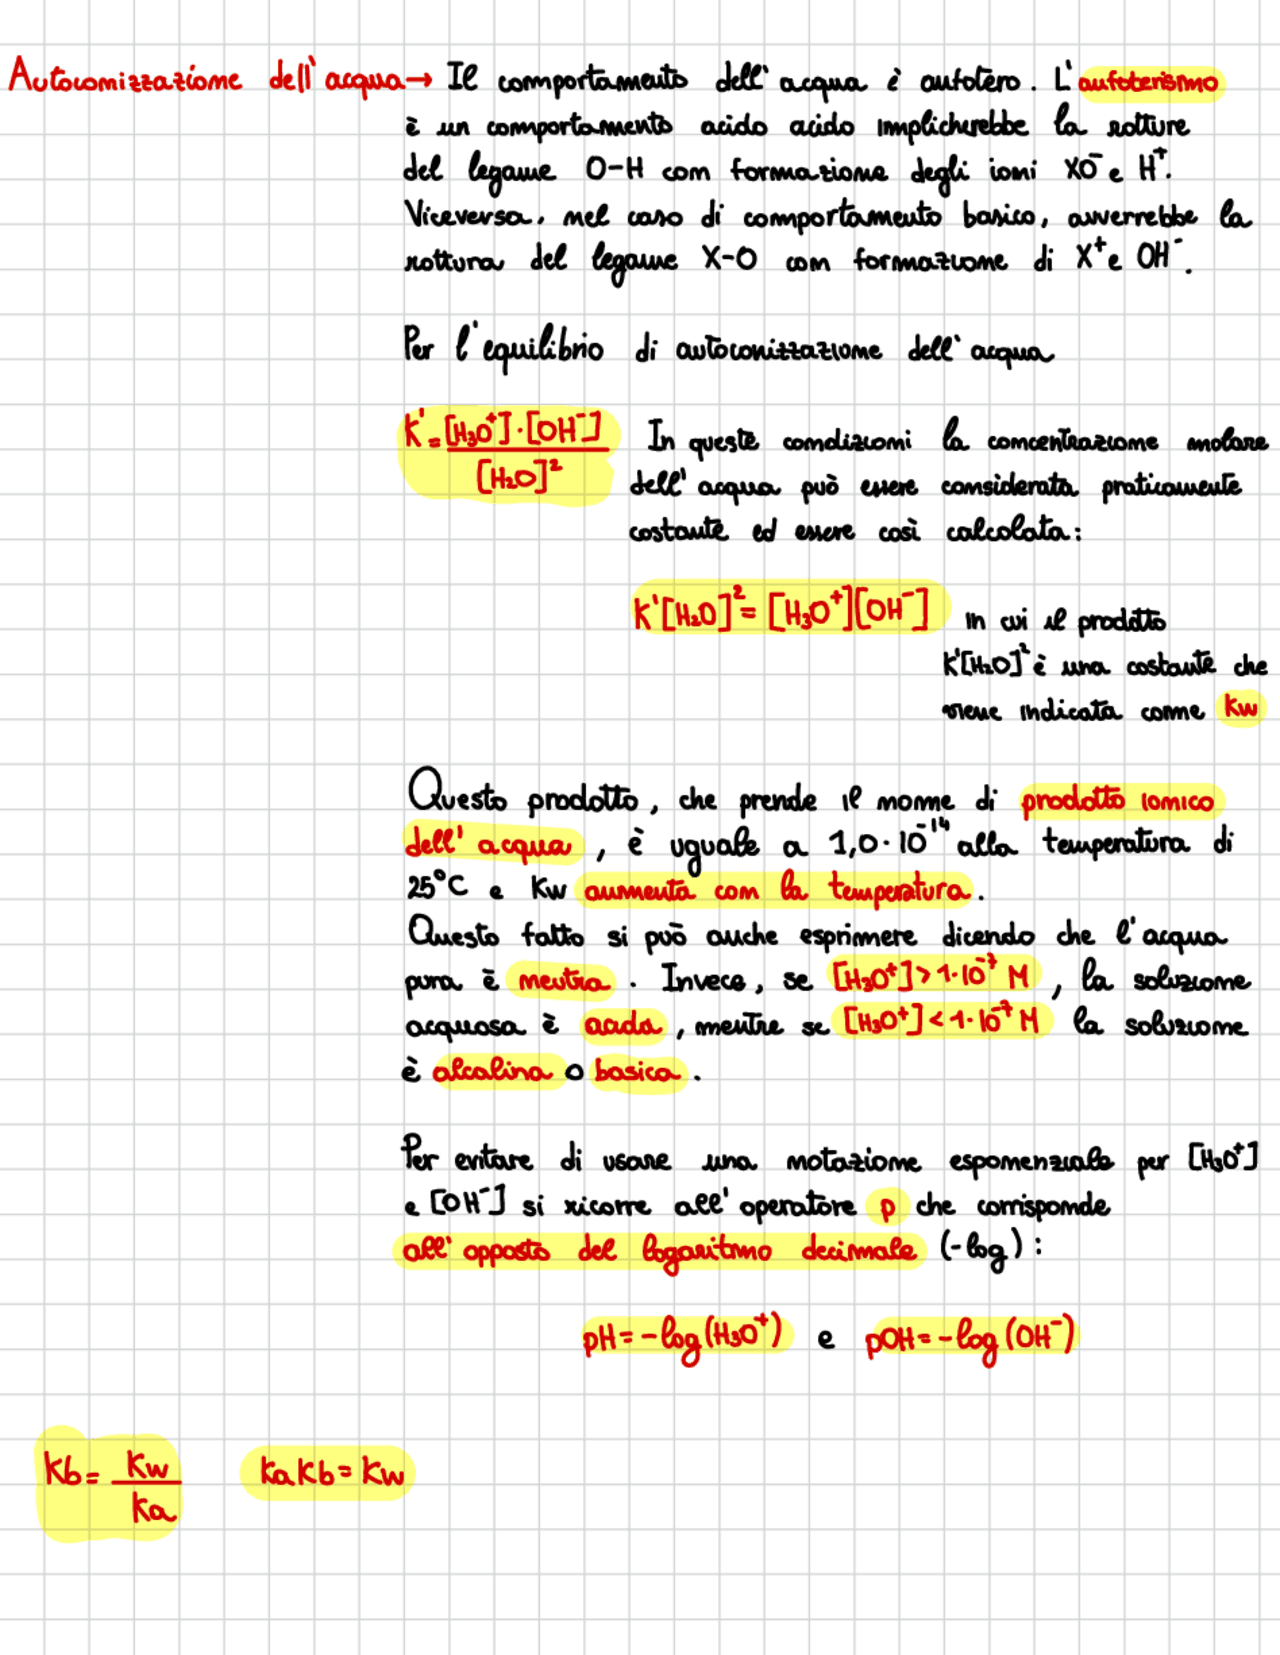 Autoionizzazione dell'acqua → Il comportamento dell'acqua è anfotero. L'anfoterismo
è un comportamento acido acido implicherebbe la rotture
del legame O-H con formazione degli ioni XO⁻ e H⁺.
Viceversa, nel caso di comportamento basico, avverrebbe la
rottura del legame X-O con formazione di X⁺ e OH⁻.
Per l'equilibrio di autoionizzazione dell'acqua
K' = [H₃O⁺]·[OH⁻] / [H₂O]²
In queste condizioni la concentrazione molare
dell'acqua può essere considerata praticamente
costante ed essere così calcolata:
K'[H₂O]² = [H₃O⁺][OH⁻]
in cui il prodotto
K'[H₂O]² è una costante che
viene indicata come Kw
Questo prodotto, che prende il nome di prodotto ionico
dell'acqua, è uguale a 1,0·10⁻¹⁴ alla temperatura di
25°C e Kw aumenta con la temperatura.
Questo fatto si può anche esprimere dicendo che l'acqua
pura è neutra. Invece, se [H₃O⁺] > 1·10⁻⁷ M, la soluzione
acquosa è acida, mentre se [H₃O⁺] < 1·10⁻⁷ M la soluzione
è alcalina o basica.
Per evitare di usare una notazione esponenziale per [H₃O⁺]
e [OH⁻] si ricorre all'operatore p che corrisponde
all'opposto del logaritmo decimale (-log):
pH = -log(H₃O⁺) e pOH = -log(OH⁻)
Kb = Kw / Ka
KaKb = Kw